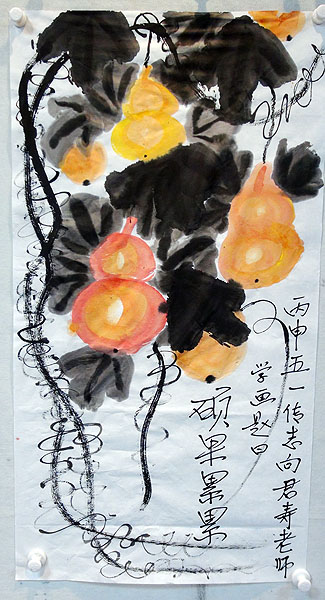 丙申五一传志向君寿老师
学画题曰
硕果累累